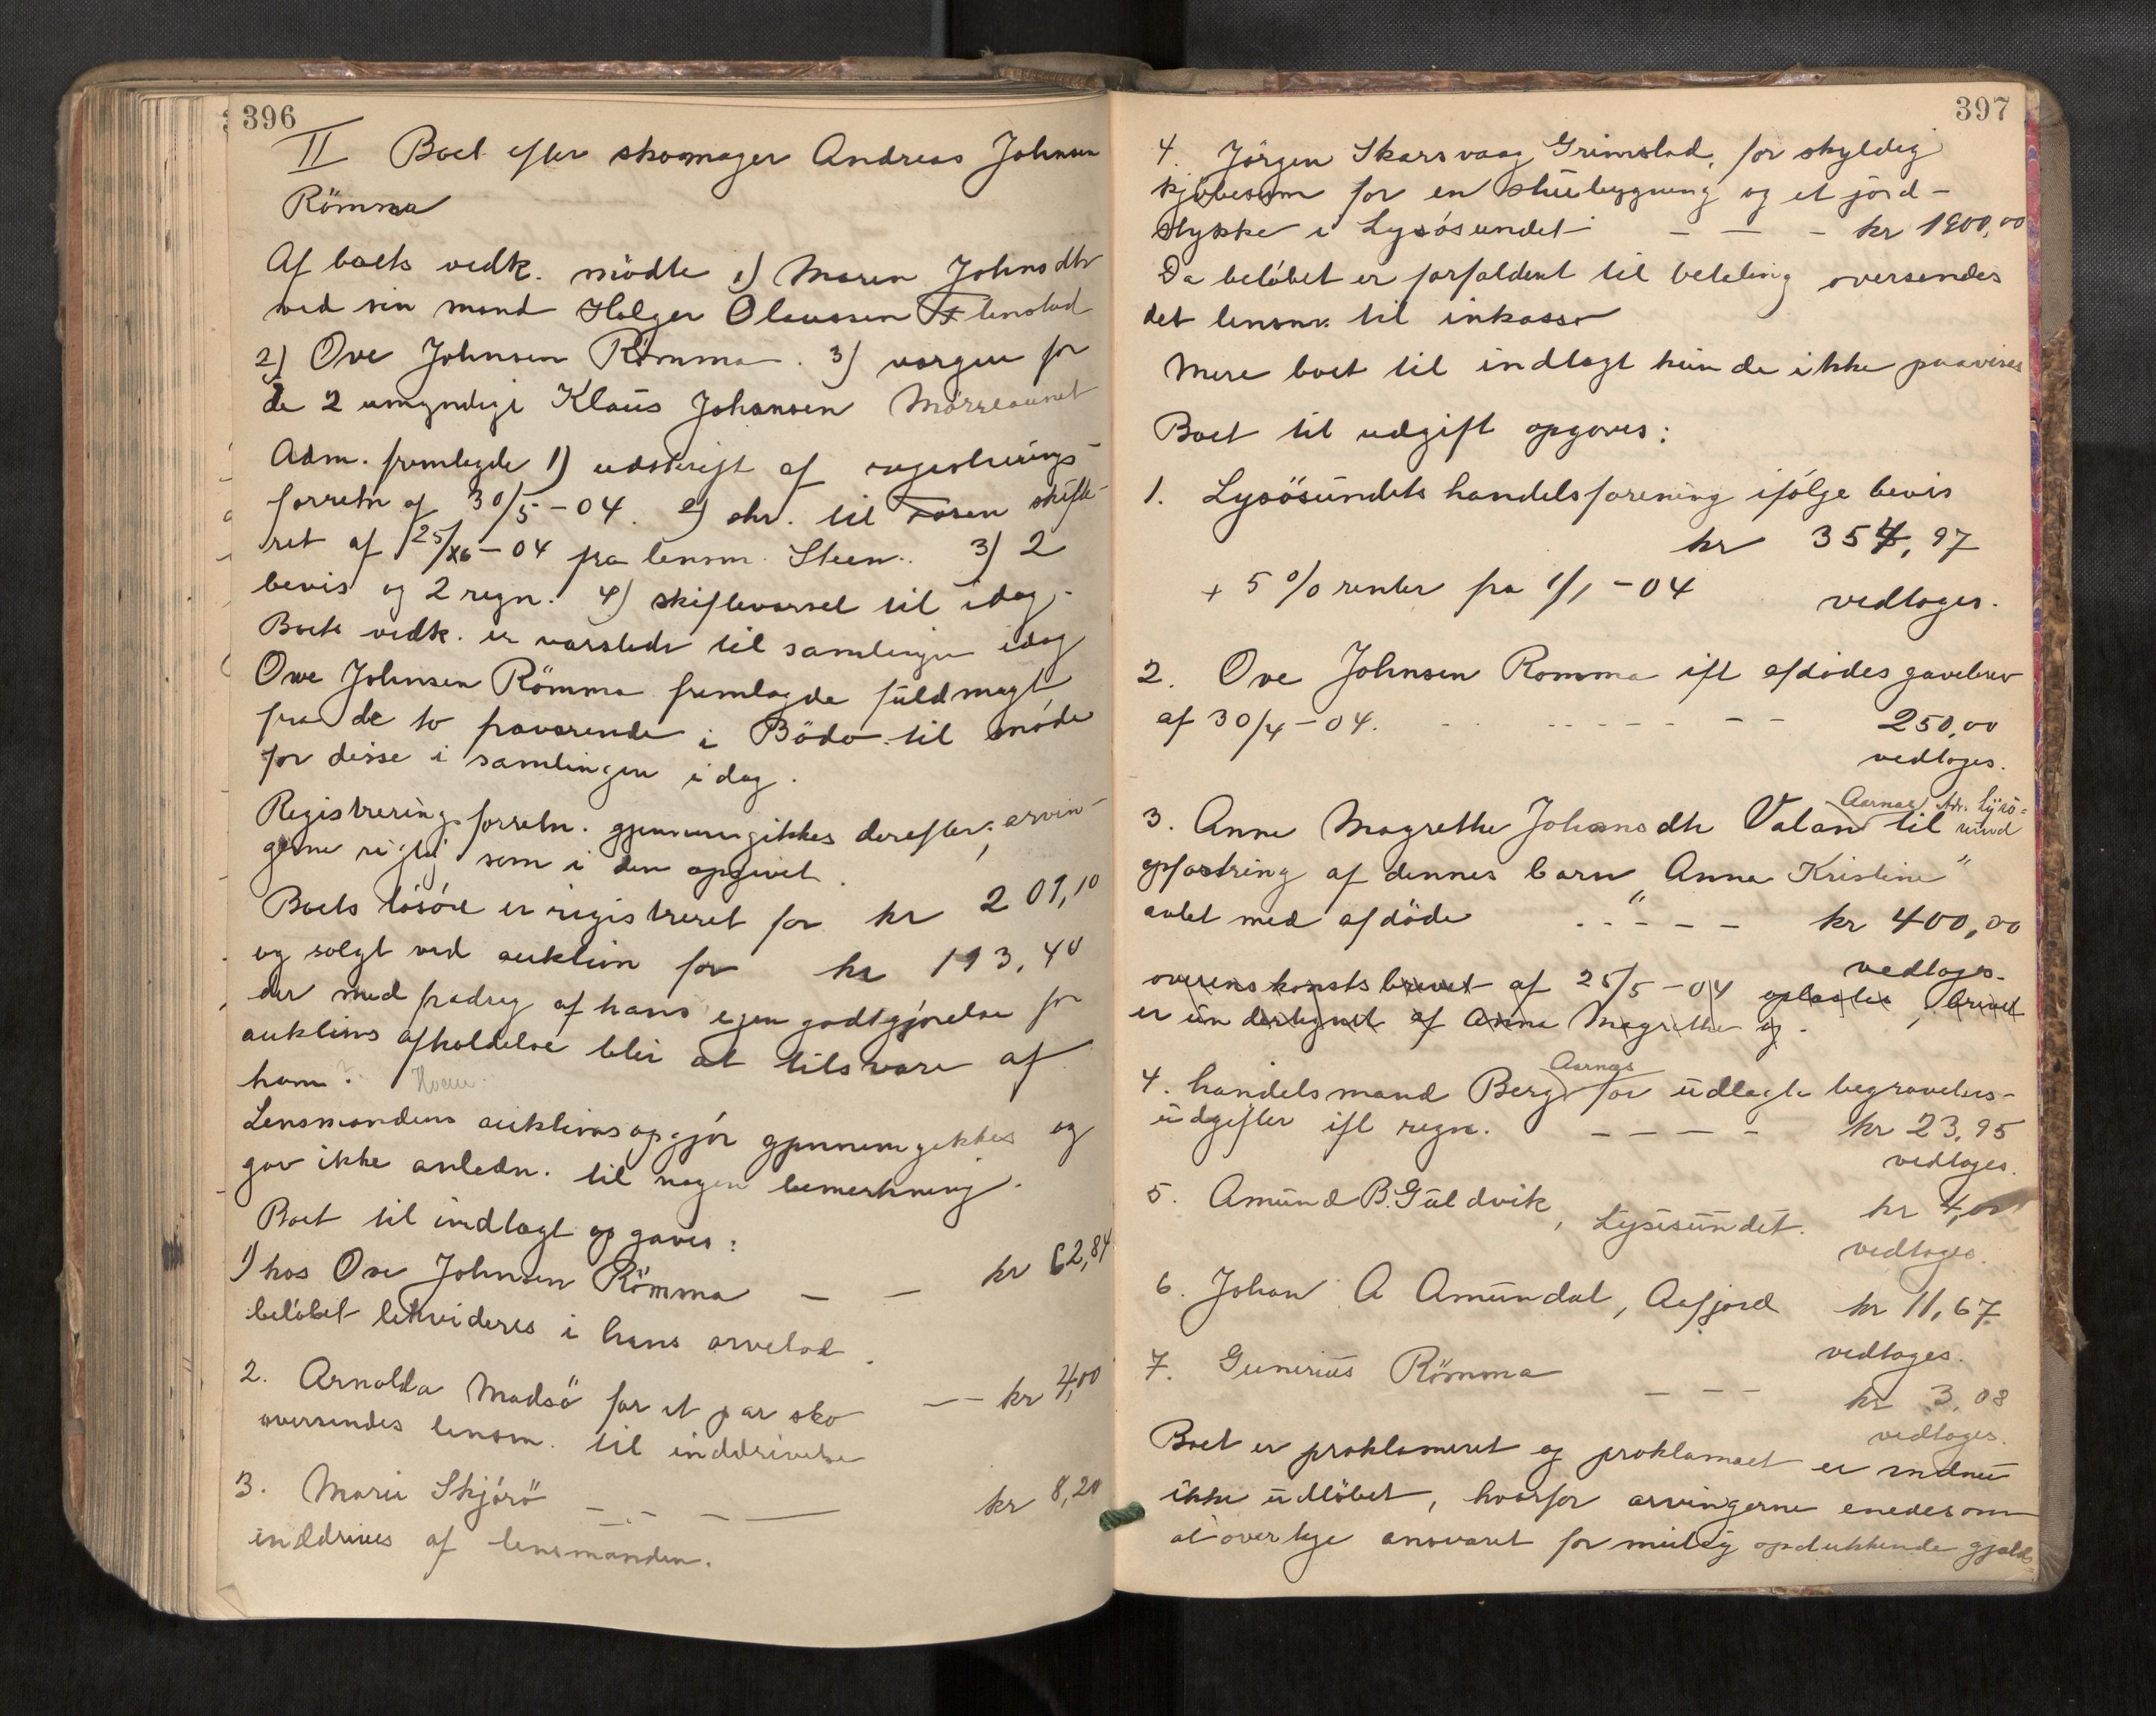 396
II Boet efter skomager Andreas Johnsen
Römma
Af boets vedk. mödte 1) Maren Johnsdtr
ved sin mand Holger Olaussen Stenstad
2) Ove Johnsen Römma. 3) vergen for
de 2 umyndige Klaus Johansen Mörreaunet
Adm. fremlagde 1) udskrift af registrerings-
forretn af 30/5-04. 2) skr. til Fosen skifte-
ret af 25/6-04 fra lensm. Steen. 3) 2
bevis og 2 regn. 4) skiftevarsel til idag.
Boets vedk. er varslede til samlingen idag
Ove Johnsen Römma fremlagde fuldmagt
fra de to fraværende i Bodö til möde
for disse i samlingen idag.
Registreringsforretn. gjennemgikkes derefter; arvin-
gerne rigtig som i den opgivet.
Boets lösöre er registreret for kr 201,10
og solgt ved auktion for kr 193,40
der med fradrag af hans egen godtgjörelse for
auktions afholdelse blir at tilsvare af
ham.
Lensmandens auktionsopgjör gjennemgikkes og
gav ikke anledn. til nogen bemerkning.
Boet til indtægt opgaves:
1) hos Ove Johnsen Römma — — kr 62,84
belöbet likvideres i hans arvelod.
2. Arnolda Madsö for et par sko — — kr 4,00
oversendes lensm. til inddrivelse
3. Marie Skjärö — — — — kr 8,20
inddrives af lensmanden.
397
4. Jörgen Skarsvaag Grimstad, for skyldig
kjöbesum for en stuebygning og et jord-
stykke i Lysösundet — — — kr 1900,00
Da belöbet er forfaldent til betaling oversendes
det lensm. til inkasso
Mere boet til indtægt kunde ikke paavises
Boet til udgift opgaves:
1. Lysösundets handelsforening ifölge bevis
kr 354,97
+ 5 % renter fra 1/1-04 vedtages.
2. Ove Johnsen Romma ifl afdödes gavebrev
af 30/4-04. - - - - - - - 250,00
vedtages.
Aarnes Adr. Lysö-
3. Anne Magrethe Johansdtr Valan til sund
opfostring af dennes barn "Anna Kristine"
avlet med afdöde - - - - kr 400,00
vedtages.
overenskomstsbrevet af 25/5-04 , brevet
er undertegnet af Anne Magrethe og.
Aarnes
4. handelsmand Berg for udlagte begravelses-
udgifter ifl regn. — — — — kr 23,95
vedtages.
5. Amund B. Guldvik, Lysösundet. kr 4,00
vedtages.
6. Johan A Amundal, Aafjord kr 11,67
vedtages.
7. Gunerius Römma — — — kr 3,08
vedtages.
Boet er proklameret og proklamaet er endnu
ikke udlöbet, hvorfor arvingerne enedes om
at overtage ansvaret for mulig opdukkende gjæld